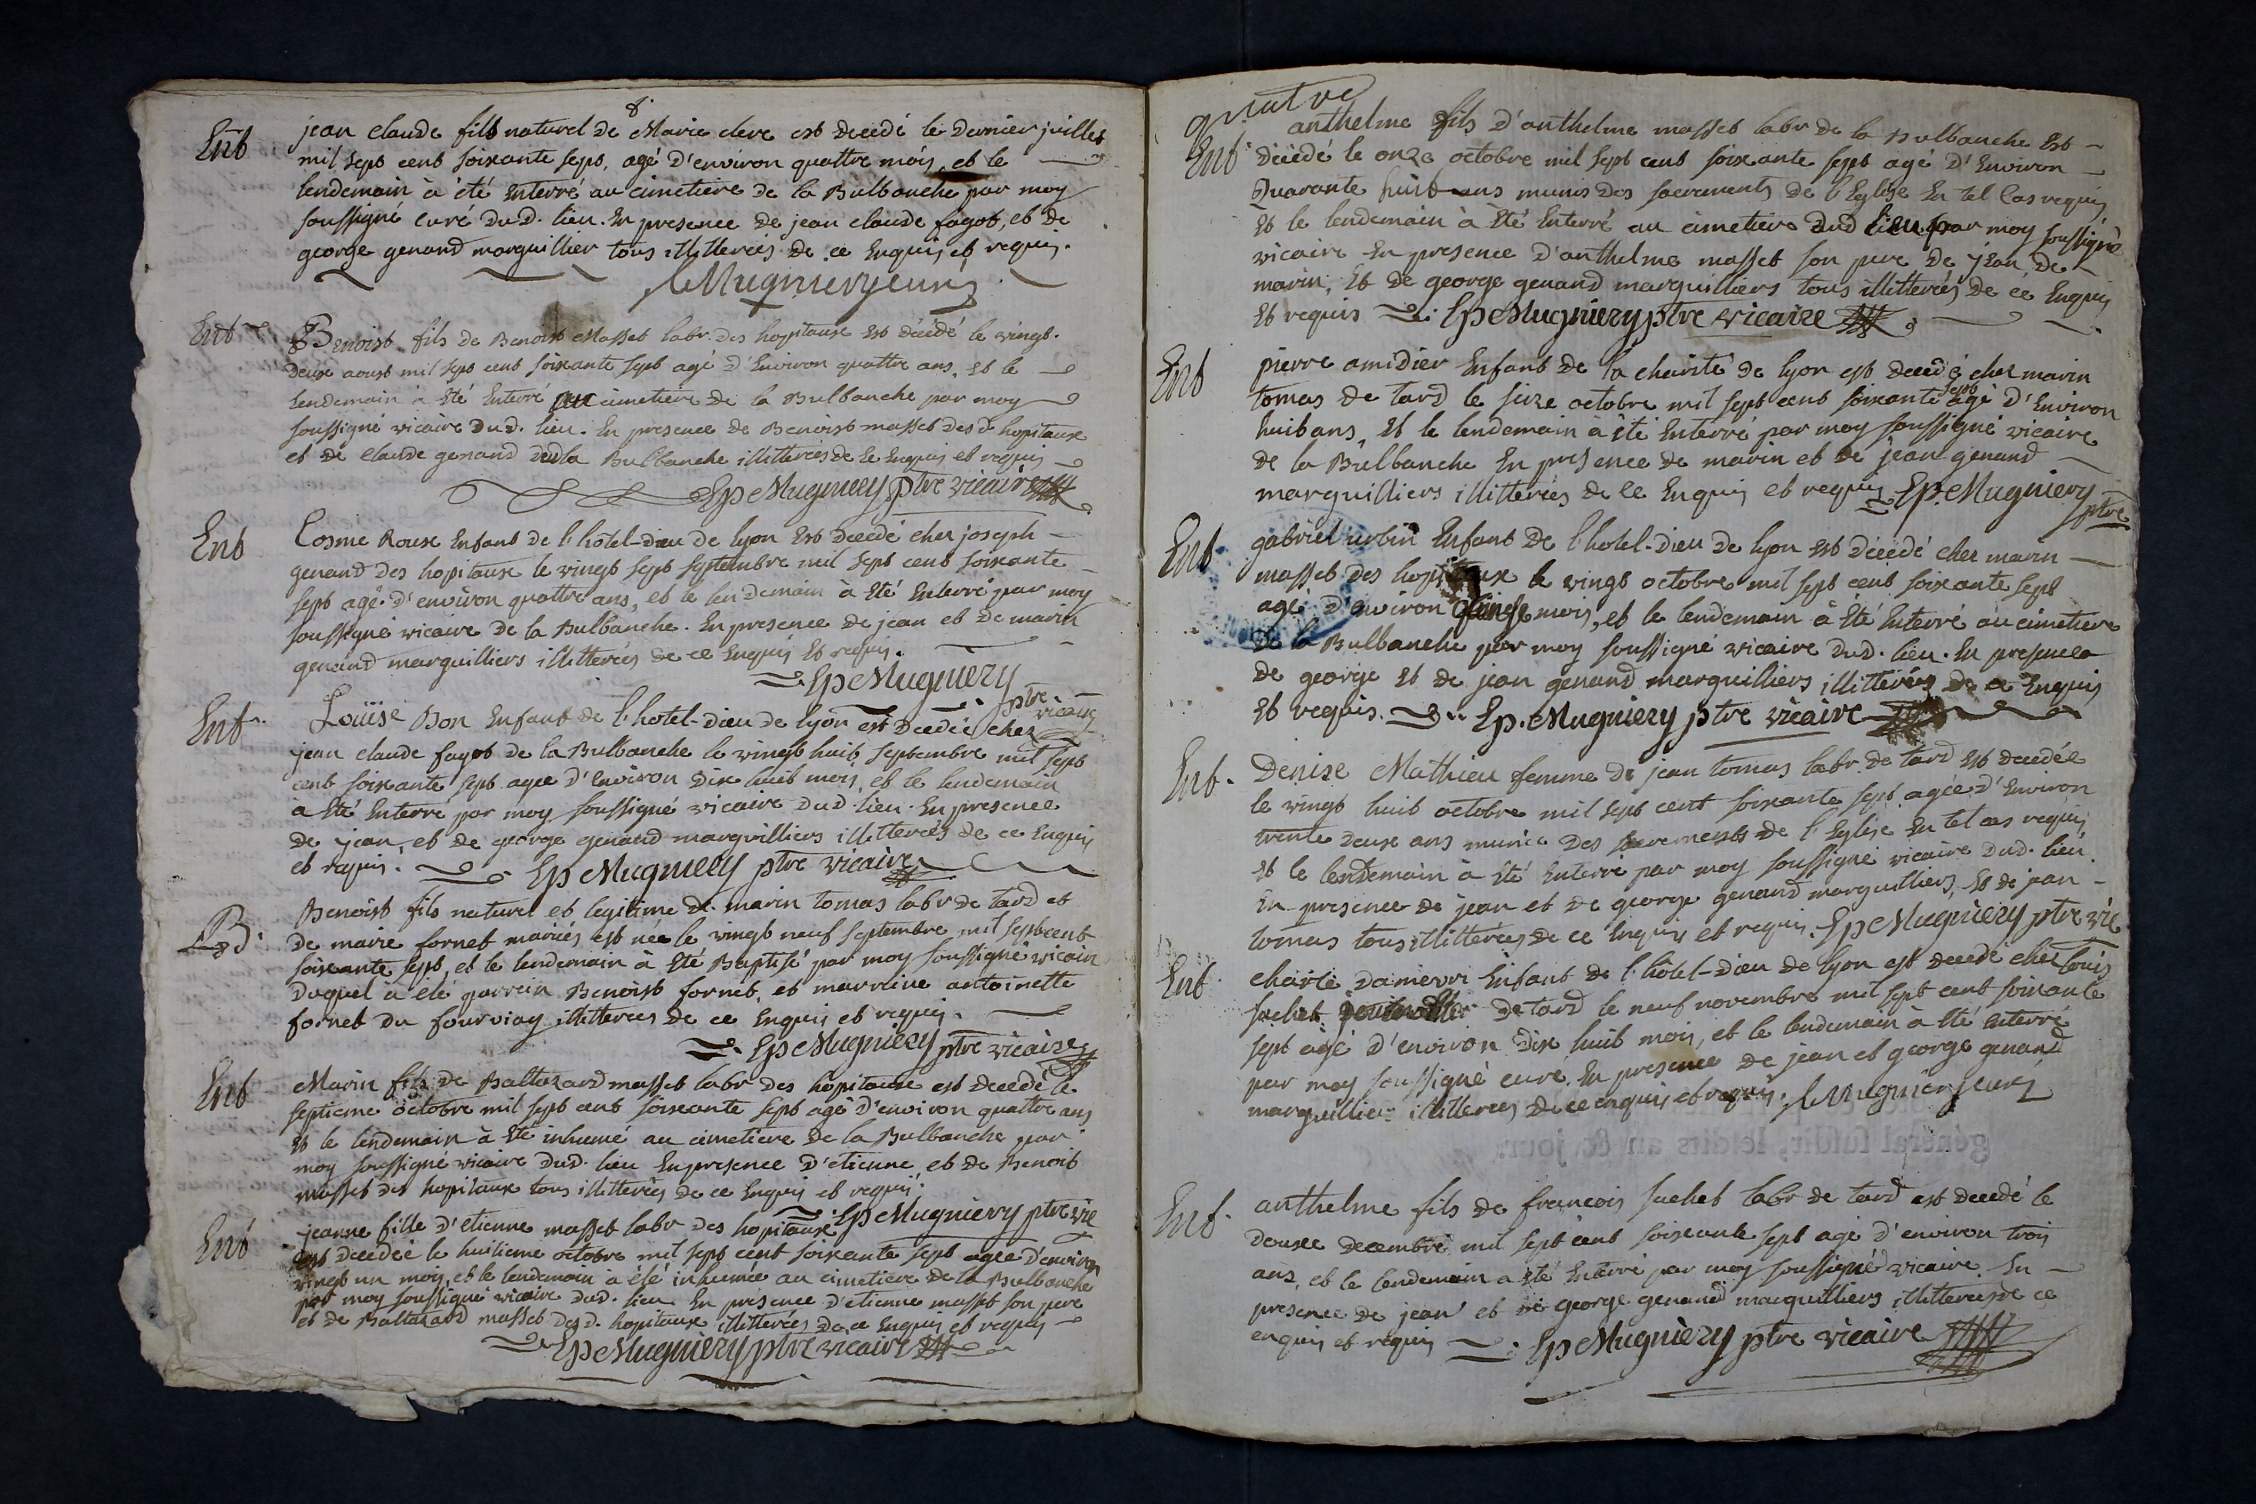 8.
Ent jean claude fils naturel de Marie clerc est decedé le dernier juillet
mil sept cent soixante sept, agé d'environ quattre mois, et le
lendemain à été enterré au cimetiere de la Bulbanche par moy
soussigné curé dud. lieu. En presence de jean claude fagot, et de
george genand marguillier tous illitterés de ce enquis et requis.
Ent Benoist fils de Benoist Masset labr. des hopitaux est décédé le vingt.
deux aoust mil sept cent soixante sept agé d'Environ quattre ans, et le
lendemain à été Enterré au cimetiere de la Bulbanche par moy
soussigné vicaire dud. lieu. En presence de Benoist masset desd. hopitaux
et de claude genand de la Bulbanche illitterés de ce Enquis et requis
Ep Mugniery ptre vicaire
Ent Cosme Roux Enfant de l'hôtel-dieu de lyon est decedé chez joseph
genand des hopitaux le vingt sept septembre mil sept cent soixante
sept agé d'environ quattre ans, et le lendemain à été enterré par moy
soussigné vicaire de la Bulbanche. En presence de jean et de marin
genand marguilliers illitterés de ce Enquis et requis.
Ep Mugniery
ptre vicaire
Ent Louise Bon Enfant de l'hotel-dieu de lyon est decedée chez
jean claude fagot de la Bulbanche le vingt huit septembre mil sept
cent soixante sept agée d'environ dix huit mois, et le lendemain
à été Enterré par moy soussigné vicaire dud. lieu. En presence
de jean et de george genand marguilliers illitterés de ce Enquis
et requis. Ep Mugniery ptre vicaire
B. Benoist fils naturel et legitime de marin tomas labr de tard et
de marie fornet mariés est née le vingt neuf septembre mil sept cent
soixante sept, et le lendemain à été Baptisé par moy soussigné vicaire
duquel à été parrein Benoist fornet, et marreine antoinette
fornet du fourviay illitterés de ce Enquis et requis.
Ep Mugniery ptre vicaire
Ent Marin fils de Baltazard masset labr des hopitaux est decedé le
septieme octobre mil sept cent soixante sept agé d'environ quattre ans
et le lendemain à été inhumé au cimetiere de la Bulbanche par
moy soussigné vicaire dud. lieu En presence d'etienne, et de Benoit
masset des hopitaux tous illitterés de ce Enquis et requis.
Ep Mugniery ptre vic
Ent jeanne fille d'etienne masset labr des hopitaux
est decedée le huitieme octobre mil sept cent soixante sept agée d'environ
vingt un mois, et le lendemain à été inhumée au cimetiere de la Bulbanche
par moy soussigné vicaire dud. lieu En présence d'etienne masset son pere
et de Baltazard masset desd. hopitaux illitterés de ce Enquis et requis
Ep Mugniery ptre vicaire
quatre
Ent anthelme fils d'anthelme masset labr de la Bulbanche Est
décédé le onze octobre mil sept cent soixante sept agé d'Environ
Quarante huit ans munis des sacrements de l'Eglise En tel cas requis
et le lendemain à été Enterré au cimetiere dud lieu par moy soussigné
vicaire En presence d'anthelme masset son pere de jean, de
marin, Et de george genand marguilliers tous illitterés de ce Enquis
Et requis Ep Mugniery ptre vicaire
Ent pierre amidier Enfant de la charité de lyon est decedé chez marin
tomas de tard le seize octobre mil sept cent soixante sept agé d'Environ
huit ans, Et le lendemain à été Enterré par moy soussigné vicaire
de la Bulbanche En presence de marin et de jean genand
marguilliers illitterés de ce Enquis et requis Ep. Mugniery
ptre
Ent gabriel urbin Enfant de l'hotel-dieu de lyon est décedé chez marin
masset des hopitaux le vingt octobre mil sept cent soixante sept
agé d'environ quinse mois, et le lendemain à été Enterré au cimetiere
de la Bulbanche par moy soussigné vicaire dud. lieu. En presence
de george et de jean genand marguilliers illitterés de ce Enquis
et requis. Ep. Mugniery ptre vicaire
Ent. Denise Mathieu femme de jean tomas labr. de tard est decedée
le vingt huit octobre mil sept cent soixante sept agée d'Environ
trente deux ans munie des sacrements de l'Eglise En tel cas requis
et le lendemain à été Enterré par moy soussigné vicaire dud. lieu.
En presence de jean et de george genand marguilliers, Et de jean
tomas tous illitterés de ce Enquis et requis. Ep Mugniery ptre vic
Ent charle Enfant de l'hôtel-dieu de lyon est decedé chez louis
suchet de tard le neuf novembre mil sept cent soixante
sept agé d'environ dix huit mois, et le lendemain à été Enterré
par moy soussigné curé. En presence de jean et george genand
marguillier illitterés de ce enquis et requis.
général susdit, lesdits an & jour.
Ent. anthelme fils de françois suchet labr de tard est decedé le
douze decembre mil sept cent soixante sept agé d'environ trois
ans, et le lendemain a été Enterré par moy soussigné vicaire. En
presence de jean et de george genand marguilliers illitterés de ce
enquis et requis Ep Mugniery ptre vicaire